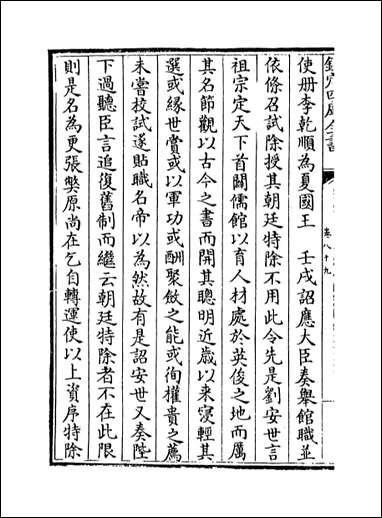 欽定四庫全書
卷八十九
使册李乾順為夏國王　壬戌詔應大臣奏舉館職並
依條召試除授其朝廷特除不用此令先是劉安世言
祖宗定天下首闢儒館以育人材處於英俊之地而厲
其名節觀以古今之書而開其聰明近歳以来寖輕其
選或緣世賞或以軍功或酬聚斂之能或徇權貴之薦
未嘗校試遂貼職名帝以為然故有是詔安世又奏陛
下過聽臣言追復舊制而繼云朝廷特除者不在此限
則是名為更張弊原尚在乞自轉運使以上資序特除